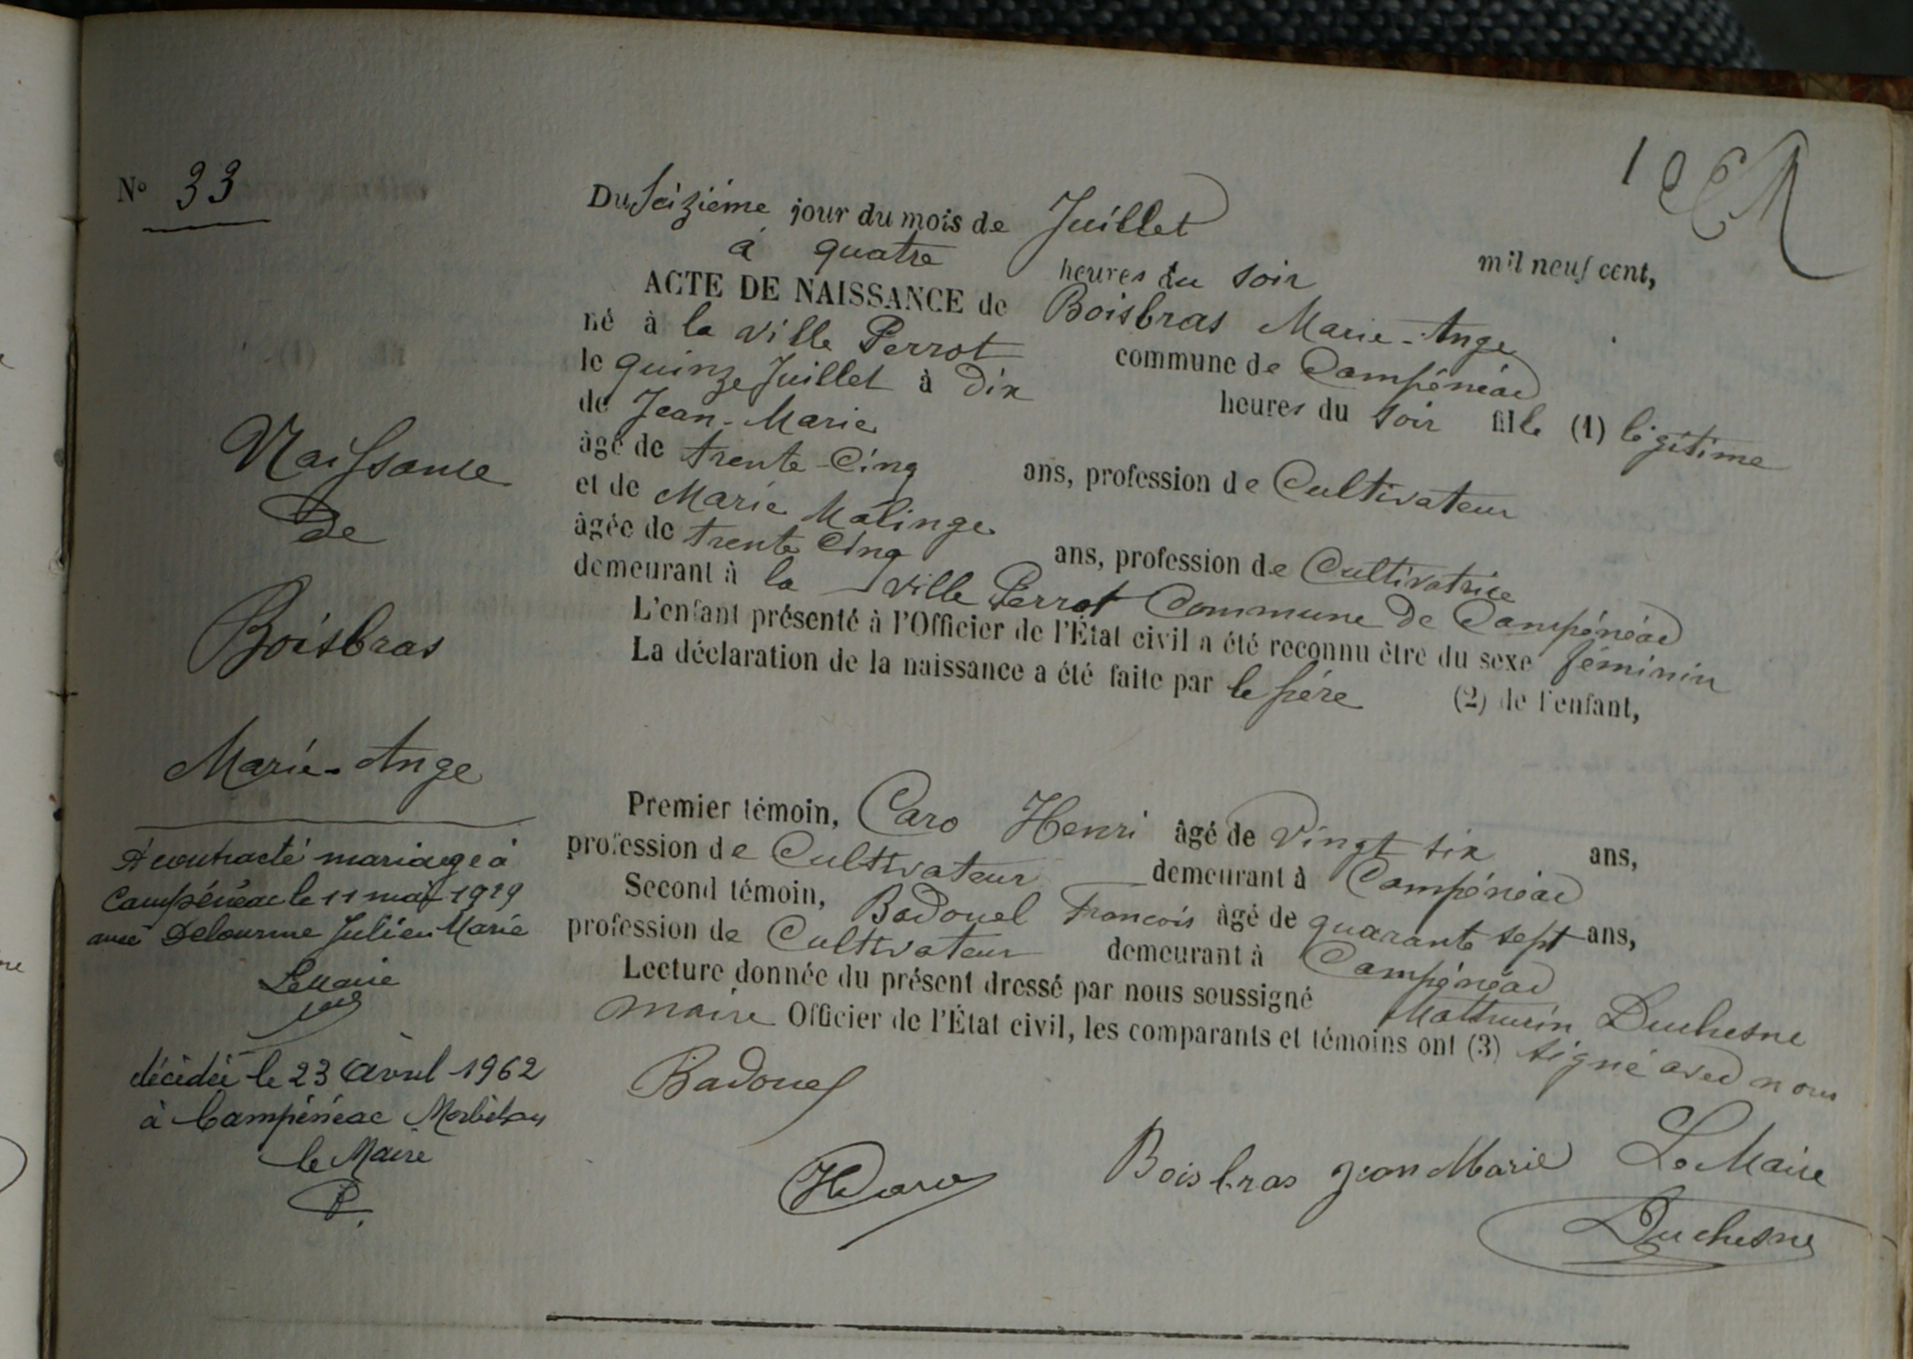 N° 33
Du Seizième jour du mois de Juillet mil neuf cent,
à quatre heures du soir
ACTE DE NAISSANCE de Boisbras Marie-Ange
né à la ville Perrot commune de Campénéac
le quinze Juillet à dix heures du soir fille (1) légitime
de Jean-Marie
âgé de trente-cinq ans, profession de Cultivateur
et de Marie Malinge
âgée de trente cinq ans, profession de Cultivatrice
demeurant à la ville Perrot Commune de Campénéac
L'enfant présenté à l'Officier de l'État civil a été reconnu être du sexe féminin
La déclaration de la naissance a été faite par le père (2) de l'enfant,
Premier témoin, Caro Henri âgé de vingt six ans,
profession de Cultivateur demeurant à Campénéac
Second témoin, Badouel François âgé de quarante sept ans,
profession de Cultivateur demeurant à Campénéac
Lecture donnée du présent dressé par nous soussigné Mathurin Duchesne
maire Officier de l'État civil, les comparants et témoins ont (3) signé avec nous
Badouel
H Caro
Boisbras Jean Marie
Le Maire
Duchesne
Naissance
de
Boisbras
Marie-Ange
A contracté mariage à
Campénéac le 11 mai 1929
avec Delourme Julien Marie
Le Maire
décédée le 23 avril 1962
à Campénéac Morbihan
le Maire